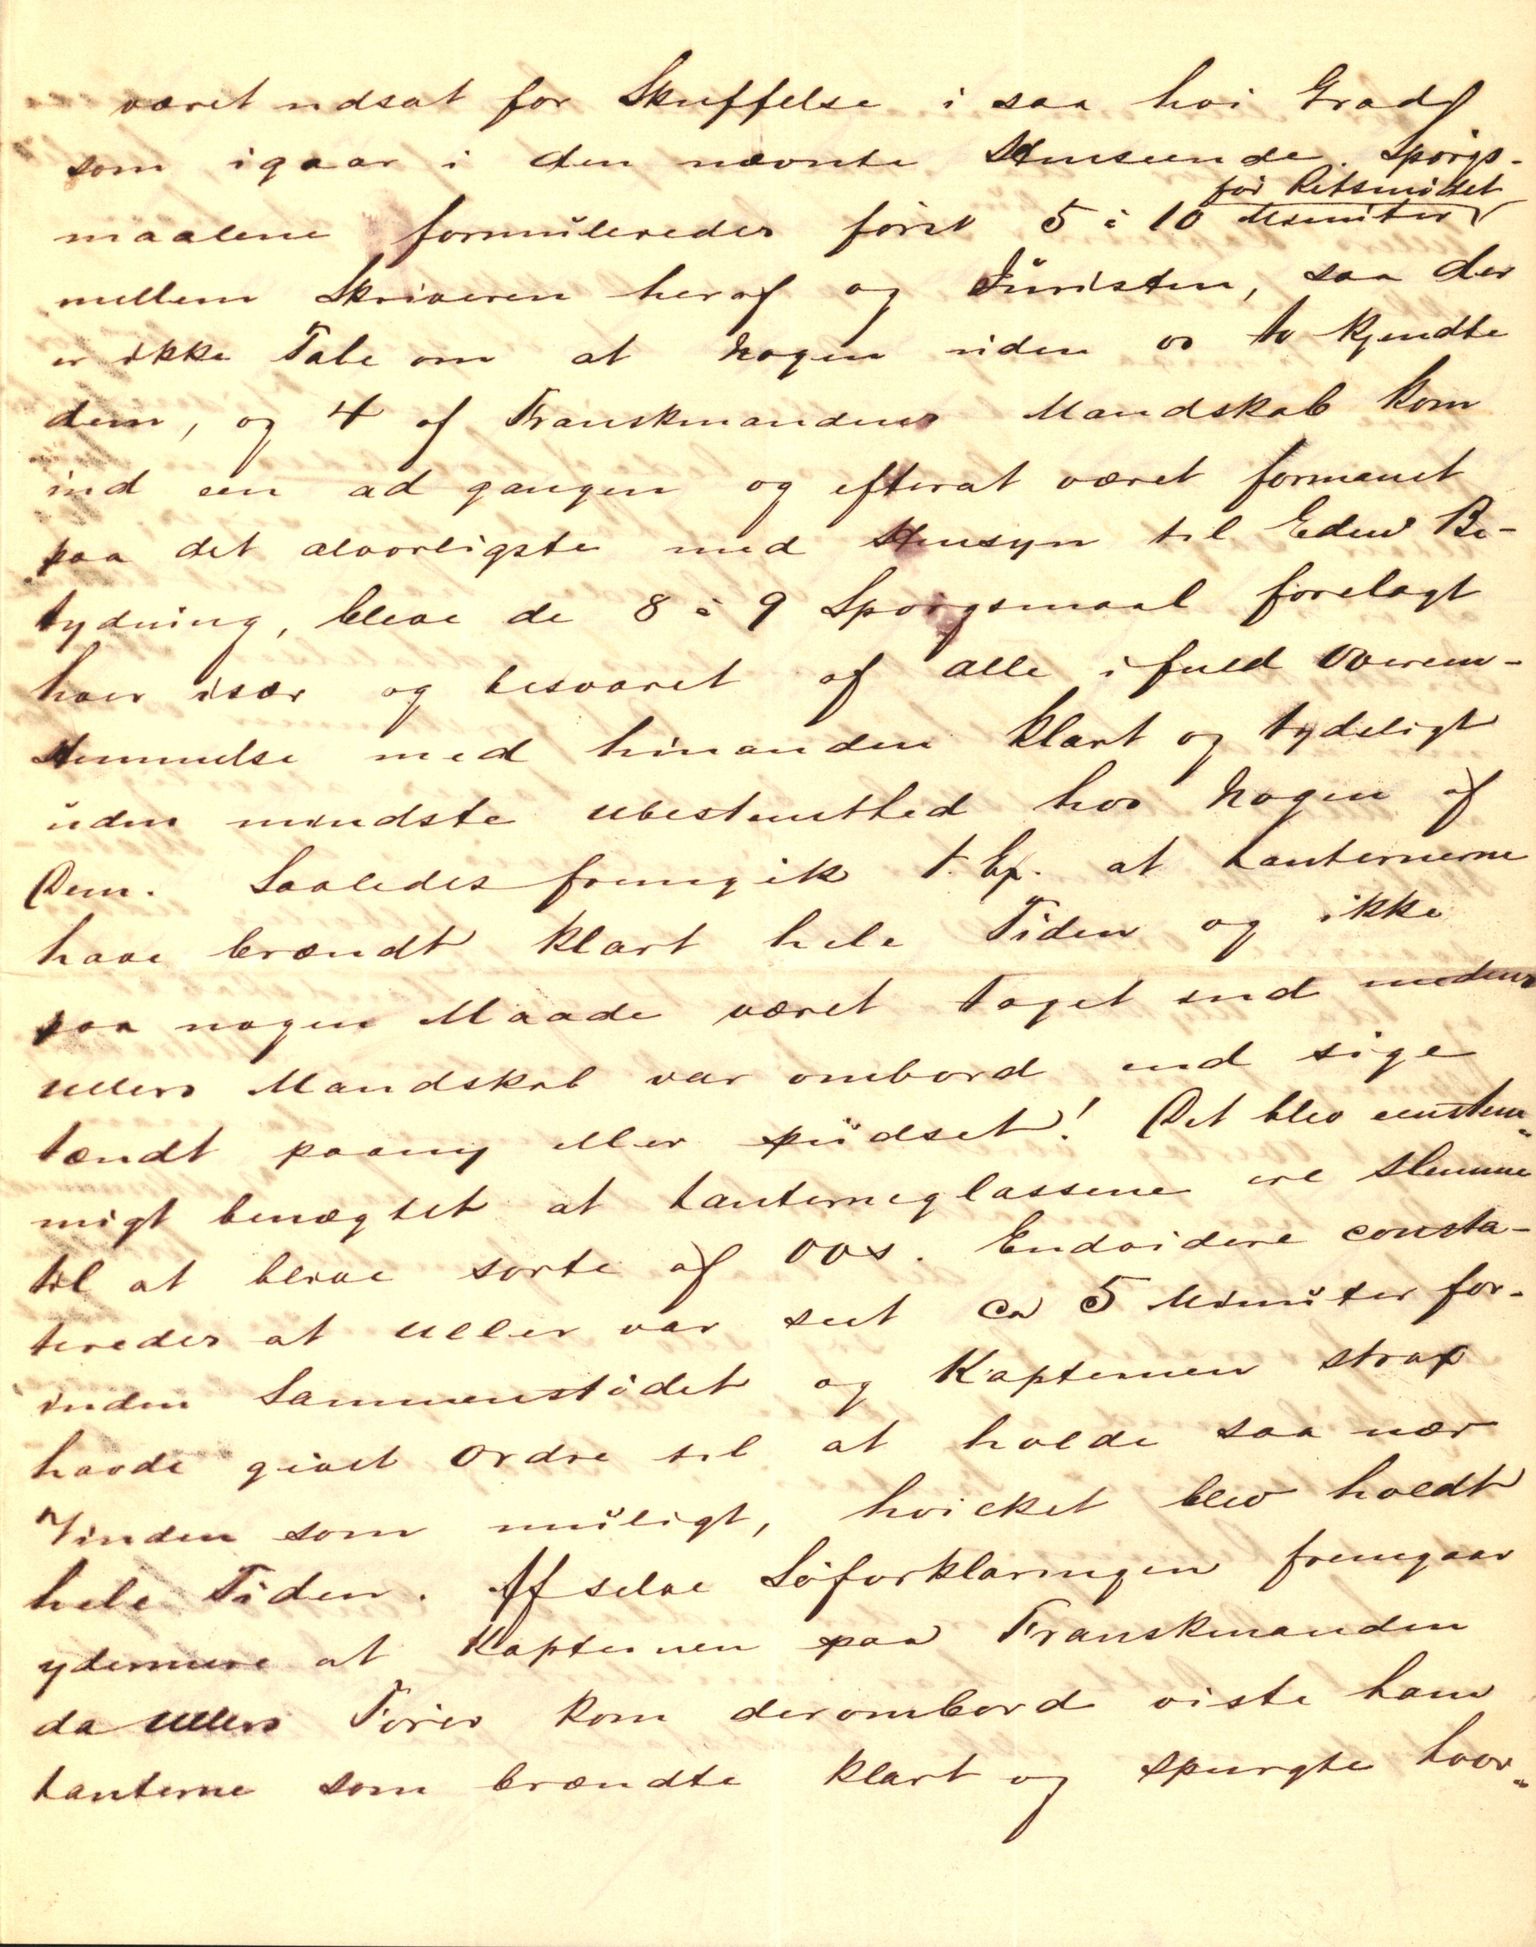 været udsat for Skuffelse i saa høi Grad
som igaar i den nævnte Henseende. Spørgs-
maalene formuleredes først 5 à 10 Minuter før Retsmødet
mellem Skriveren heraf og Juristen, saa der
er ikke Tale om at nogen uden os to kjendte
dem, og 4 af Franskmandens Mandskab kom
ind een ad gangen og efterat været formanet
paa det alvorligste med Hensyn til Edens Be-
tydning, bleve de 8 à 9 Spørgsmaal forelagt
hver især og besvaret af alle i fuld Overen-
stemmelse med hinanden klart og tydeligt
uden mindste Ubestemthed hos nogen af
Dem. Saaledes fremgik t. Ex. at Lanternerne
have brændt klart hele Tiden og ikke
paa nogen Maade været taget ind medens
Ullers Mandskab var ombord end sige
tændt paany eller pudset! Det blev eenstem-
migt benægtet at Lanterneglassene ere slemme
til at blive sorte af Oos. Endvidere consta-
teredes at Uller var seet ca 5 Minuter for-
inden Sammenstødet og Kapteinen strax
havde givet Ordre til at holde saa nær
Vinden som muligt, hvilket blev holdt
hele Tiden. Af selve Søforklaringen fremgaar
ydermere at Kapteinen paa Franskmanden
da Ullers Fører kom derombord viste ham
Lanterne som brændte klart og spurgte hvor-